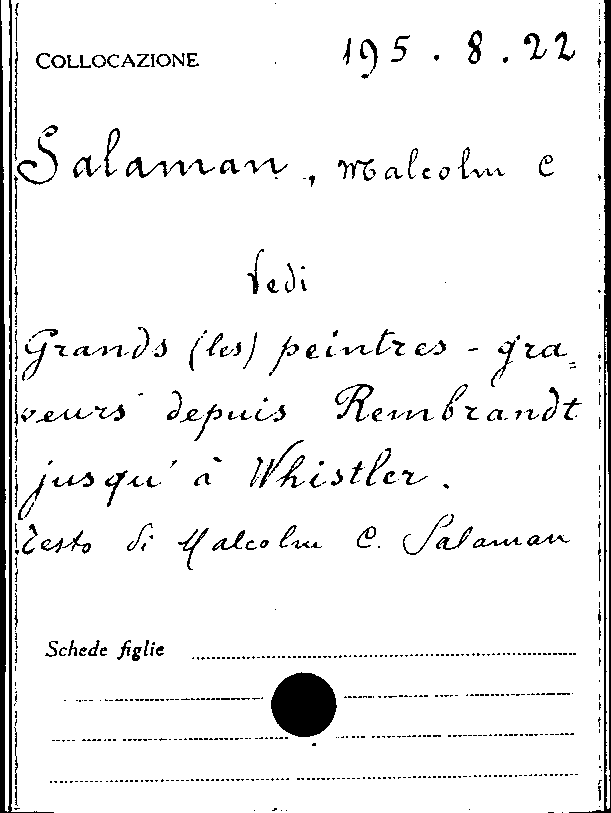 COLLOCAZIONE 195.8.22
Salaman, Malcolm C
Vedi
Grands (les) peintres - gra=
veurs depuis Rembrandt
jusqu' à Whistler.
Testo di Malcolm C. Salaman
Schede figlie